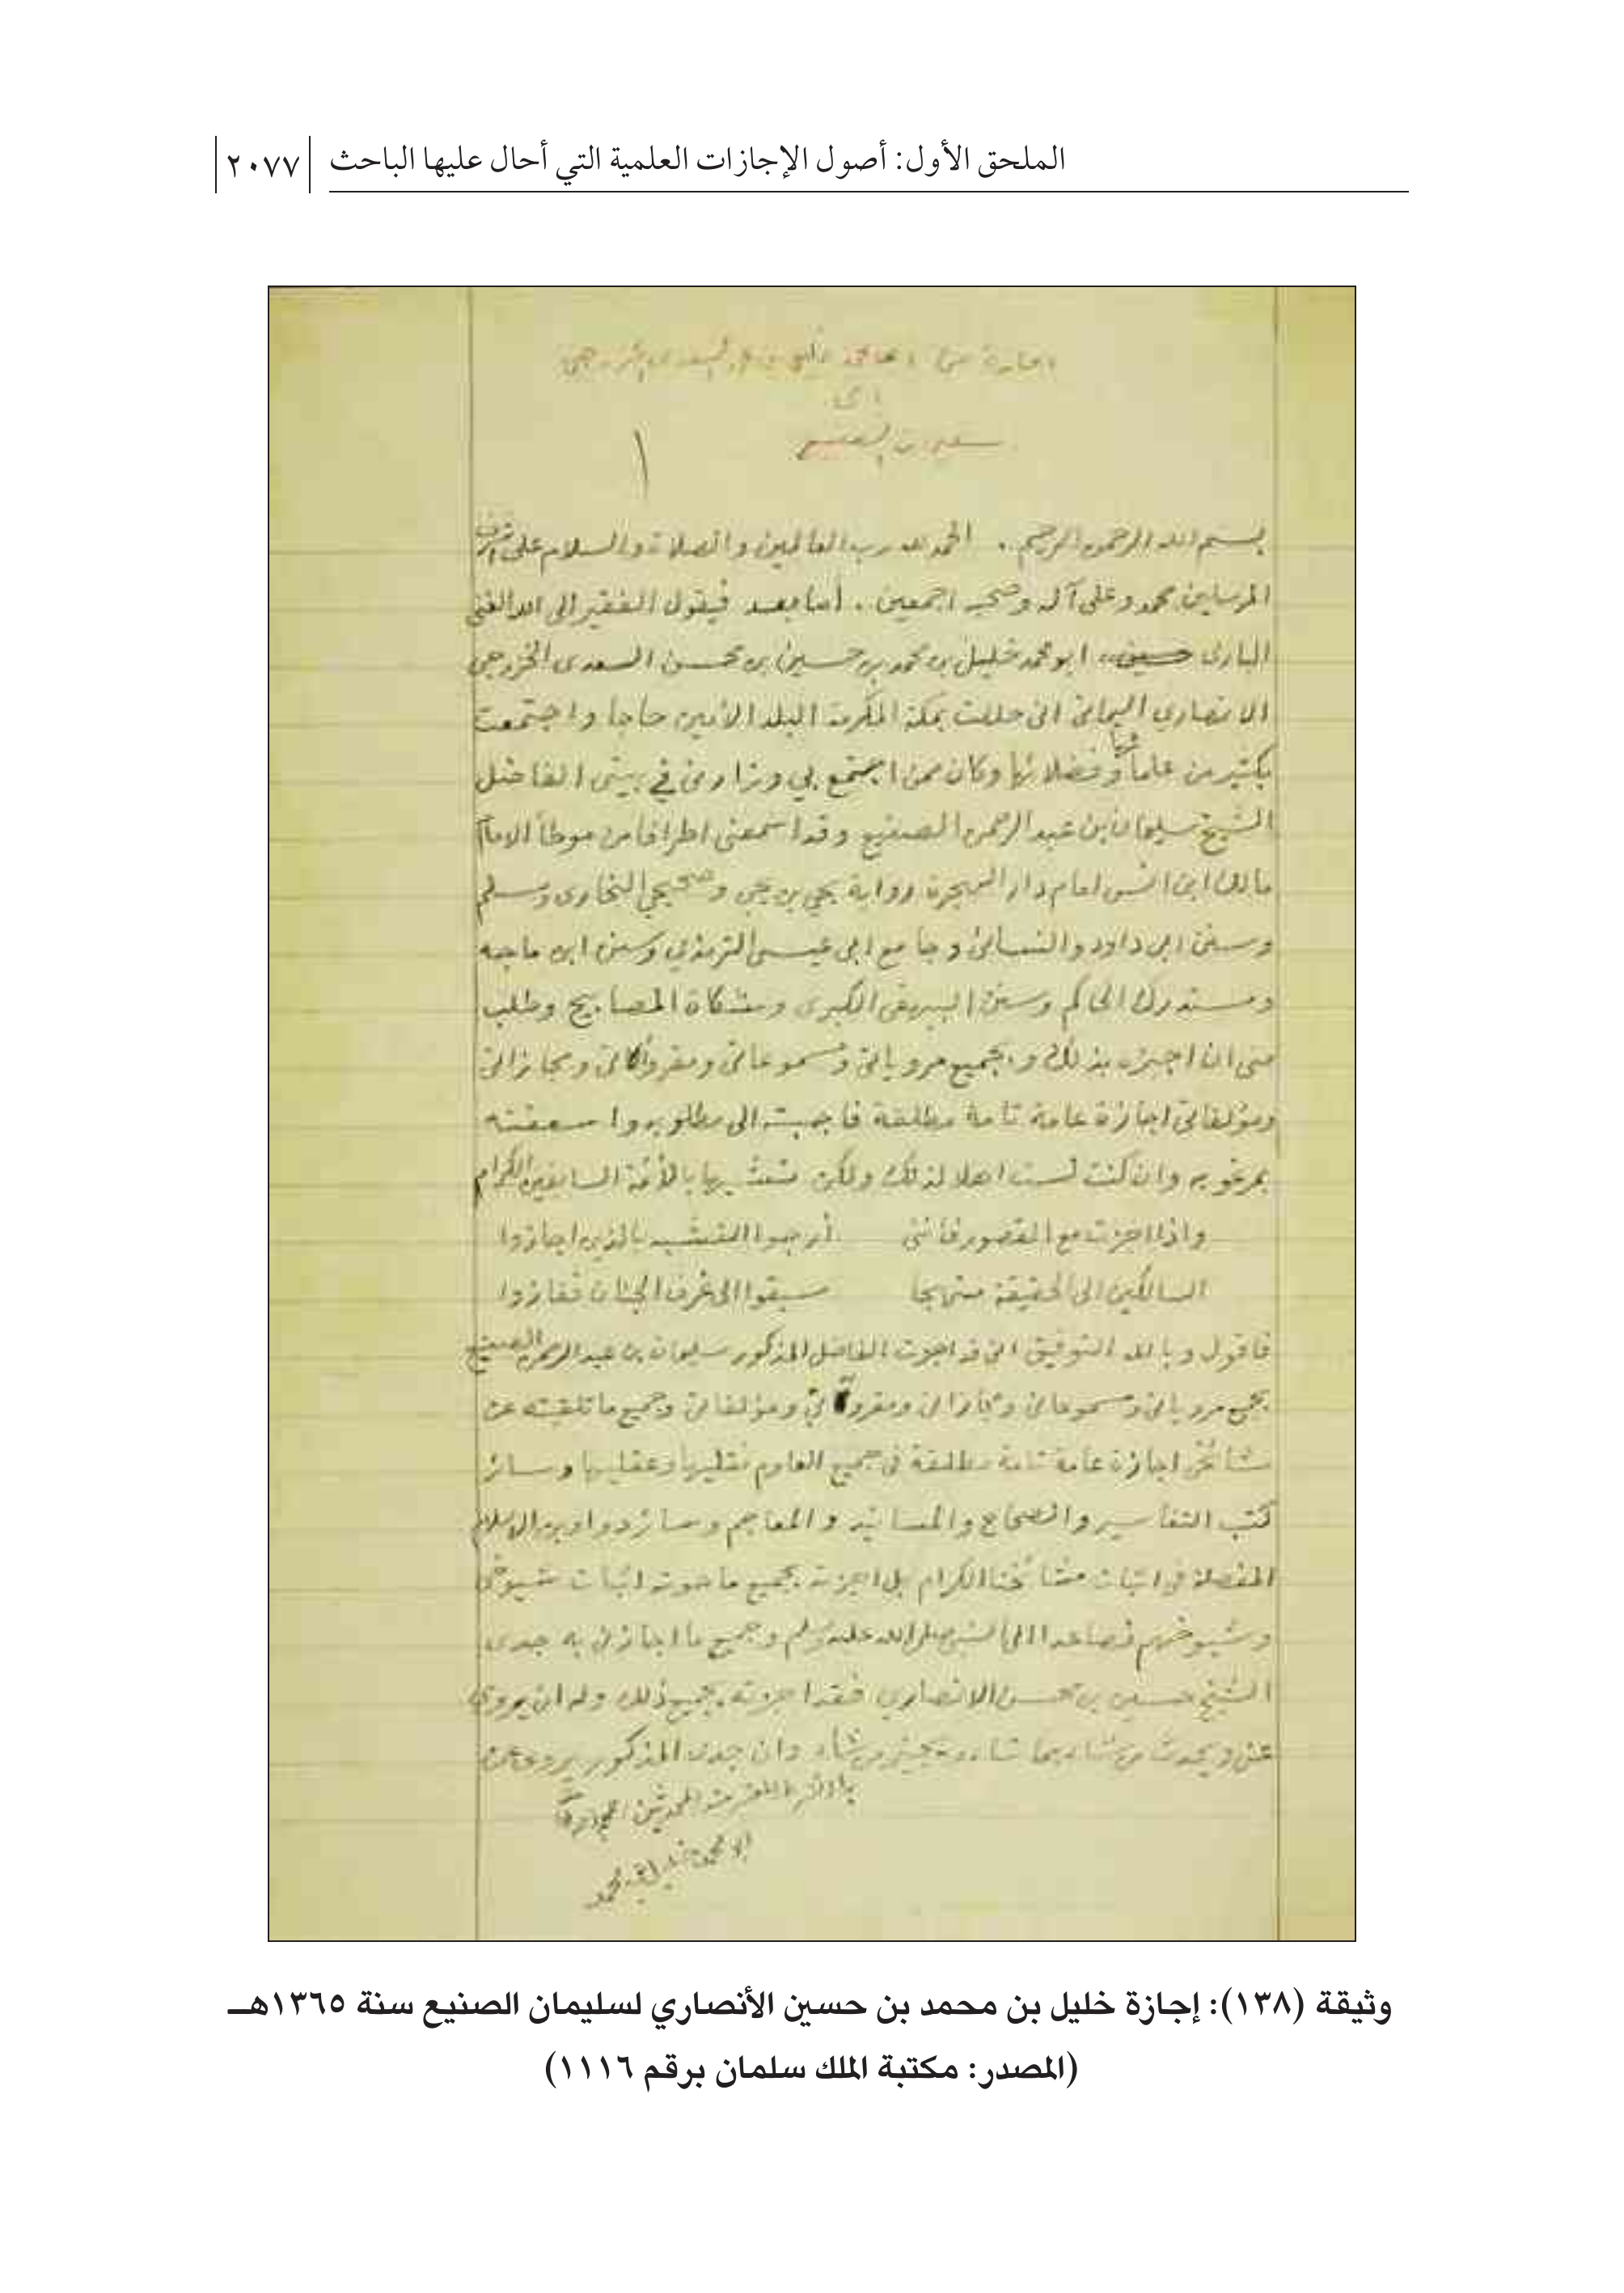 الملحق الأول: أصول الإجازات العلمية التي أحال عليها الباحث ٢٠٧٧
الى
١
بسم الله الرحمن الرحيم .. الحمد لله رب العالمين والصلاة والسلام على اشرف
المرسلين محمد وعلى آله وصحبه اجمعين . أما بعد فيقول الفقير الى الله الغني
الباري ابو محمد خليل بن محمد بن حسين بن محسن السعدى الخزرجي
الانصاري اليماني اني حللت بمكة المكرمة البلد الأمين حاجا واجتمعت
بكثير من علمائها وفضلائها وكان ممن اجتمع بي وزارني في بيتي الفاضل
الشيخ سليمان بن عبد الرحمن الصنيع وقد اسمعنى اطرافا من موطأ الامام
مالك ابن انس امام دار الهجرة رواية يحي بن يحي وصحيحي البخارى ومسلم
وسنن ابي داود والنسائى وجامع ابي عيسى الترمذي وسنن ابن ماجه
ومستدرك الحاكم وسنن البيهقى الكبرى ومشكاة المصابيح وطلب
منى ان اجيزه بذلك وبجميع مروياتى ومسموعاتى ومقروآتى ومجازاتى
ومؤلفاتى اجازة عامة تامة مطلقة فاجبته الى مطلوبه واسعفته
بمرغوبه وان كنت لست اهلا لذلك ولكن تشبها بالأئمة السابقين الكرام
واذا اجزت مع القصور فأننى أرجوا التشبه بالذين اجازوا
السالكين الى الحقيقة منهجا سبقوا الى غرف الجنان ففازوا
فاقول وبالله التوفيق انى قد اجزت الفاضل المذكور سليمان بن عبد الرحمن الصنيع
بجميع مروياتى ومسموعاتى ومجازاتى ومقروآتي ومؤلفاتى وجميع ما تلقيته عن
مشائخى اجازة عامة تامة مطلقة فى جميع العلوم نقليها وعقليها وسائر
كتب التفاسير والصحاح والمسانيد والمعاجم وسائر دواوين الاسلام
المفصلة فى اثبات مشائخنا الكرام بل اجزته بجميع ما حوته اثبات شيوخى
وشيوخهم فصاعدا الى النبي صلى الله عليه وسلم وجميع ما اجازنى به جدى
الشيخ حسين بن محسن الانصاري فقد اجزته بجميع ذلك وله ان يروي
عنى ويحدث من شاء بما شاء ويجيز من شاء وان جدى المذكور يروى عن
ابو محمد خليل بن محمد
وثيقة (١٣٨): إجازة خليل بن محمد بن حسين الأنصاري لسليمان الصنيع سنة ١٣٦٥هـ
(المصدر: مكتبة الملك سلمان برقم ١١١٦)